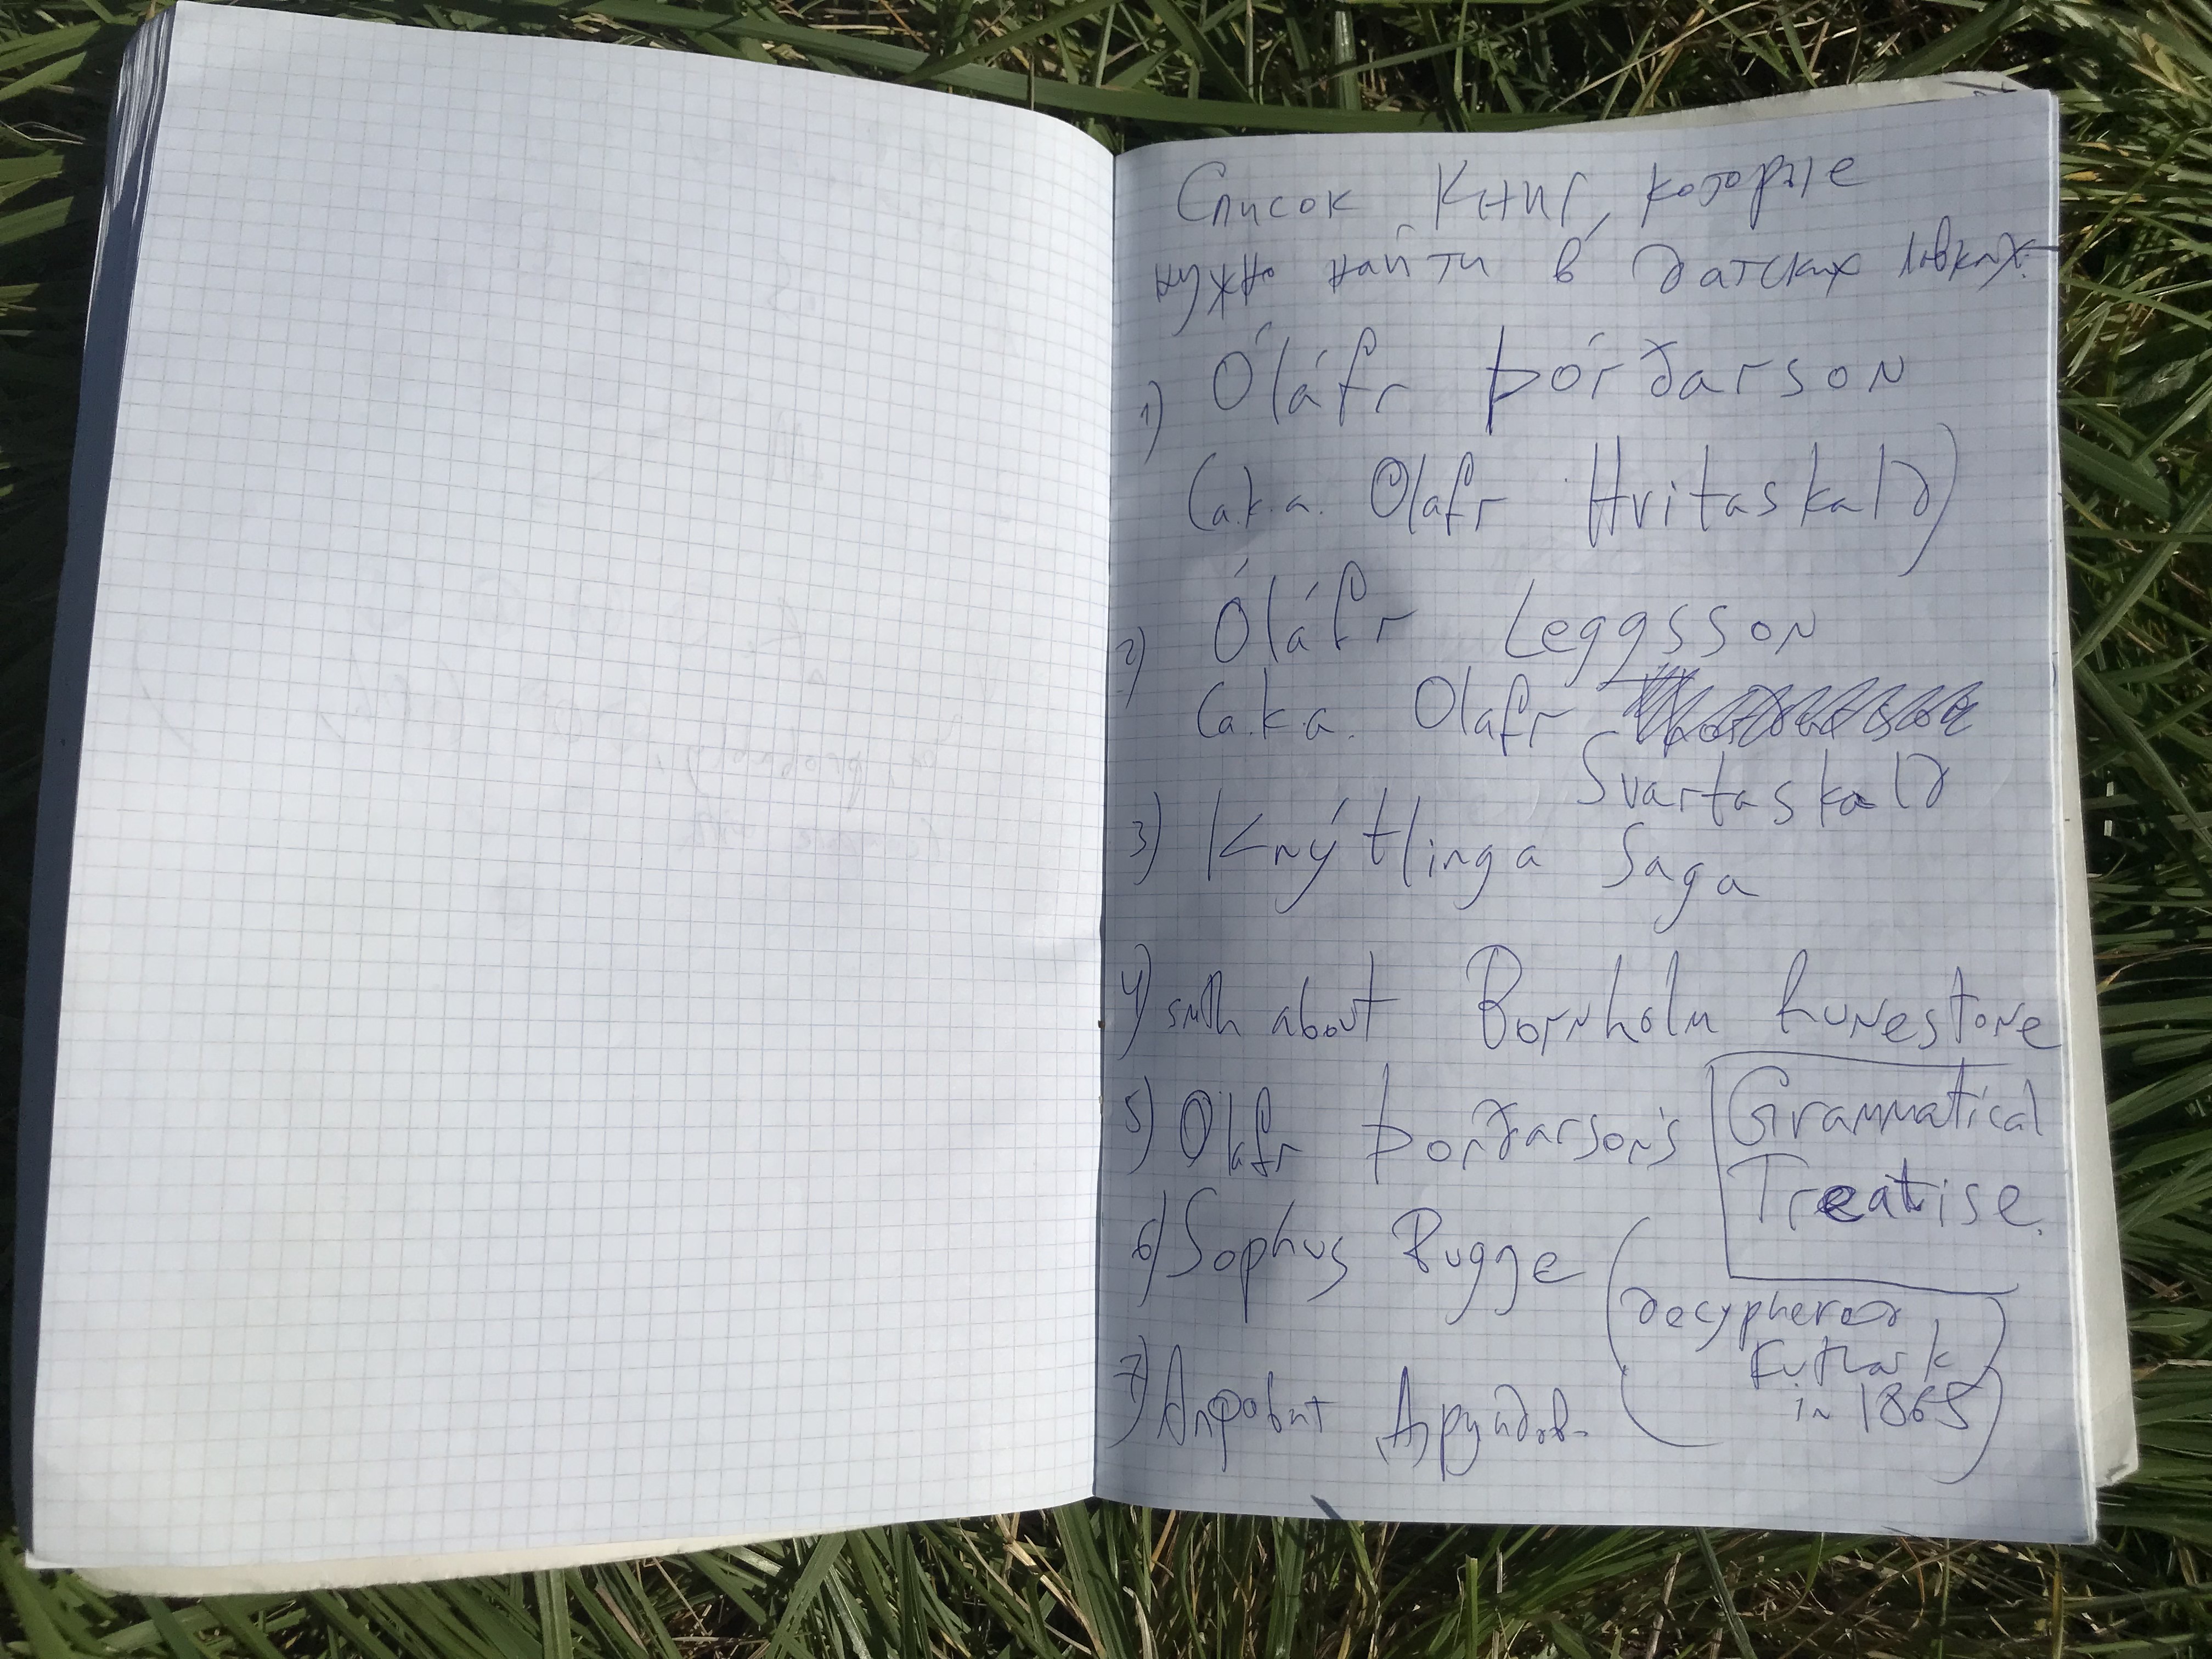 Список книг, которые
нужно найти в датских
1) Óláfr Þórðarson
(a.k.a. Olafr Hvitaskald)
2) Óláfr Leggsson
(a.k.a. Olafr Svartaskald
3) Knýtlinga Saga
4) smth about Bornholm runestone
5) Olafr Þorðarson's Grammatical
Treatise.
6) Sophus Bugge (decypherer
Futhark
in 1865)
7)